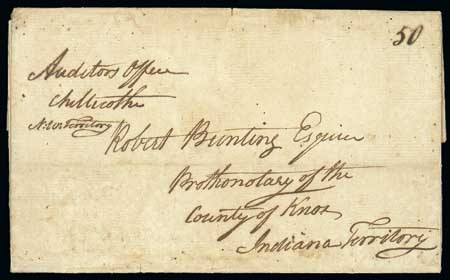 50
Auditors Office
Chillicothe
N:W:Territory
Robert Bunting Esquire
Prothonotary of the
County of Knox
Indiana Territory